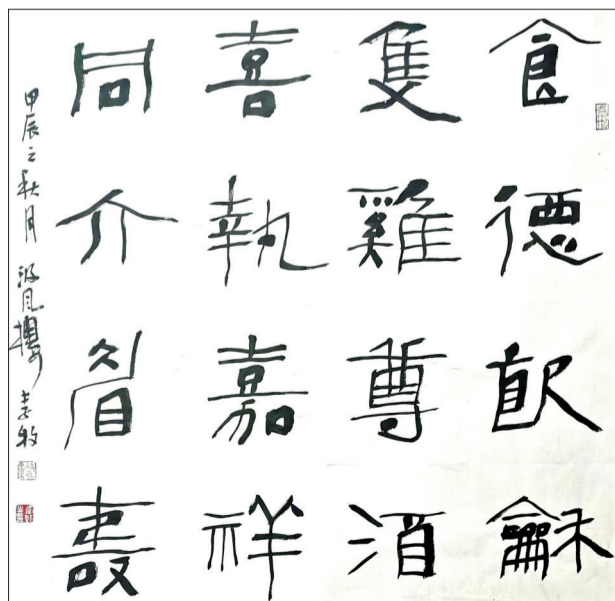 食德飲龢
隻雞尊酒
喜執嘉祥
同介眉壽
甲辰之秋月